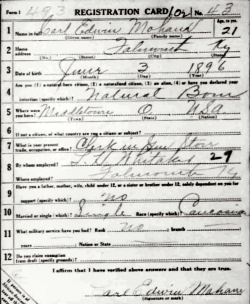 Form 1 493 REGISTRATION CARD No. 43
1 Name in full Carl Edwin Mohand Age, in yrs. 21
(Given name) (Family name)
2 Home address Falmouth Ky
3 Date of birth June 3 1896
4 Are you a natural-born citizen, a naturalized citizen, an alien, or have you declared your intention (specify which)? Natural Born
5 Where were you born? Middletown O USA
6 If not a citizen, of what country are you a citizen or subject?
7 What is your present trade, occupation, or office? Clerk in Store
8 By whom employed? Whitaker 29
Where employed? Falmouth Ky
9 Have you a father, mother, wife, child under 12, or a sister or brother under 12, solely dependent on you for support (specify which)? No
10 Married or single (which)? Single Race (specify which)? Caucasian
11 What military service have you had? Rank No
years Nation or State
12 Do you claim exemption from draft (specify grounds)?
I affirm that I have verified above answers and that they are true.
Carl Edwin
(Signature or mark)